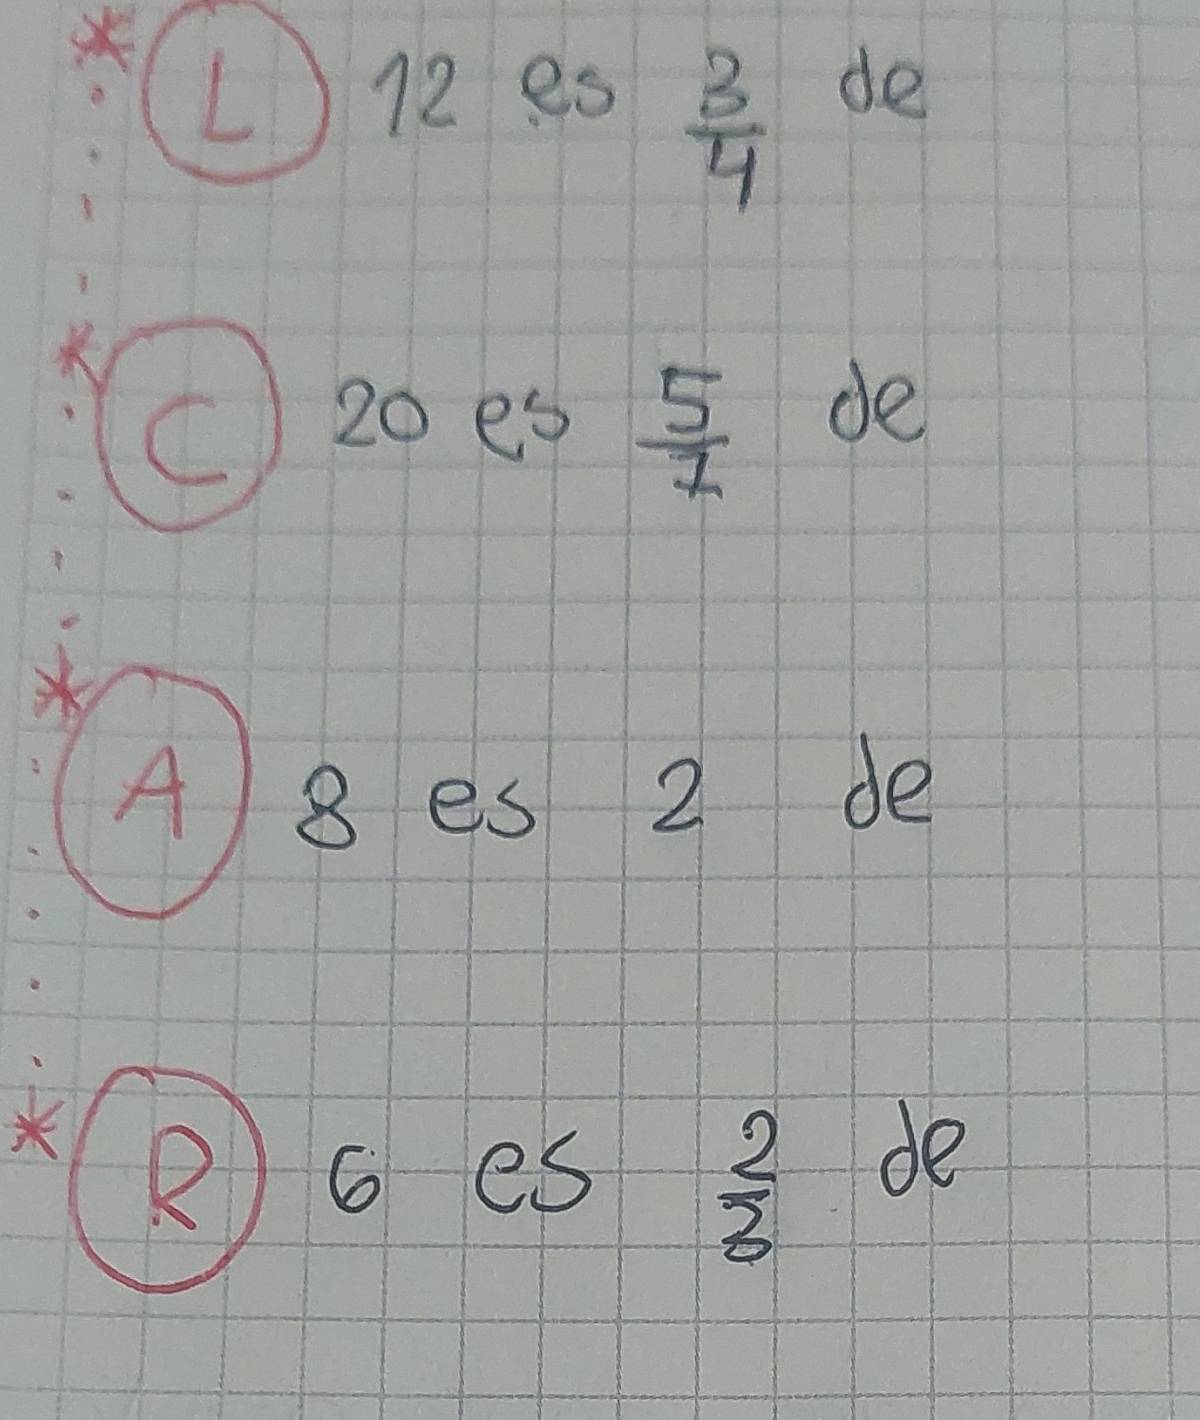 L 12 es 3/4 de
C 20 es 5/7 de
A 8 es 2 de
R 6 es 2/3 de